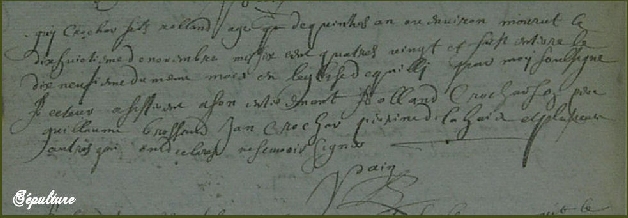 guy Crochar fils rolland agé de quinse an ou environ mourut le
dixhuictieme de novembre mil six cent quatres vingt et sept enterré le
dix neufieme du meme mois en leglise de quilli par moy soubsigne
recteur assisterent a son enterrement Rolland Crochar son pere
guillaume brossaud Jan Crochar pierre de la haie et plusieurs
autres qui ont declaré ne scavoir signer
Sépulture